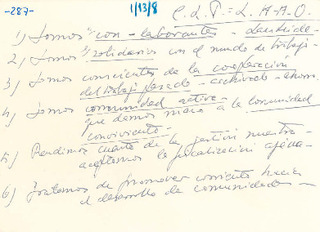 -287-
1/13/8
C.L.T. = L.A.B.O.
1) Somos "con-laborantes -
2) Somos solidarios con el mundo de trabajo-
3) Somos conscientes de la cooperación
del trabajo pasado - archivado - ahorro
4) Somos comunidad activa -
que damos a la comunidad
conviviente -
5) Rendimos cuenta de la gestión nuestra -
aceptamos la fiscalización
6) Tratamos de promover hacia
el desarrollo de comunidades -